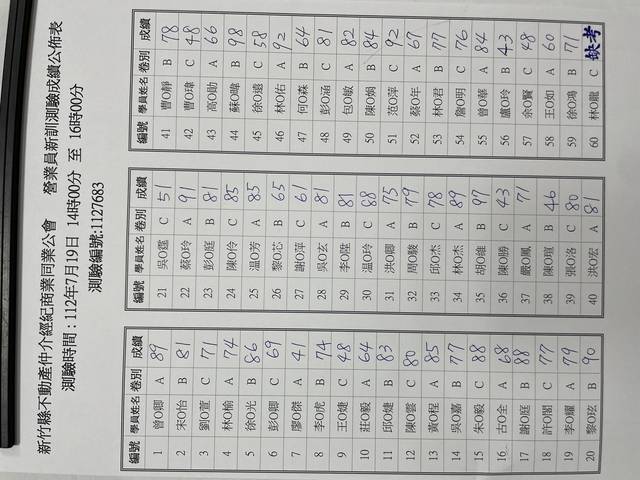 新竹縣不動產仲介經紀商業同業公會　營業員新訓測驗成績公佈表
測驗時間 : 112年7月19日 14時00分 至 16時00分
測驗編號:1127683
編號 學員姓名 卷別 成績
1 曾O卿 A 89
2 宋O怡 B 81
3 劉O萱 C 71
4 林O榆 A 74
5 徐O光 B 86
6 彭O卿 C 69
7 廖O傑 A 41
8 李O虎 B 74
9 王O婕 C 48
10 莊O毅 A 64
11 邱O婕 B 83
12 陳O雲 C 80
13 黃O程 A 85
14 吳O嘉 B 77
15 朱O毅 C 88
16 古O全 A 68
17 謝O庭 B 88
18 許O閣 C 77
19 李O耀 A 79
20 黎O玹 B 90
編號 學員姓名 卷別 成績
21 吳O霆 C 51
22 蔡O玲 A 91
23 彭O庭 B 81
24 陳O伶 C 85
25 温O芳 A 85
26 黎O芯 B 65
27 謝O萍 C 61
28 吳O玄 A 81
29 李O陞 B 81
30 温O玲 C 88
31 洪O卿 A 75
32 周O駿 B 79
33 邱O杰 C 78
34 林O杰 A 89
35 胡O維 B 97
36 陳O勝 C 43
37 嚴O鳳 A 71
38 陳O瑄 B 46
39 張O洛 C 80
40 洪O宏 A 81
編號 學員姓名 卷別 成績
41 曹O靜 B 78
42 曹O瑋 C 48
43 高O勛 A 66
44 蘇O暐 B 98
45 徐O遠 C 58
46 林O佑 A 92
47 何O森 B 64
48 彭O涵 C 81
49 包O敏 A 82
50 陳O娟 B 84
51 范O萍 C 92
52 蔡O年 A 67
53 林O君 B 77
54 詹O明 C 76
55 曾O華 A 84
56 盧O玲 B 43
57 余O賢 C 48
58 王O如 A 60
59 徐O鴻 B 71
60 林O龍 C 缺考